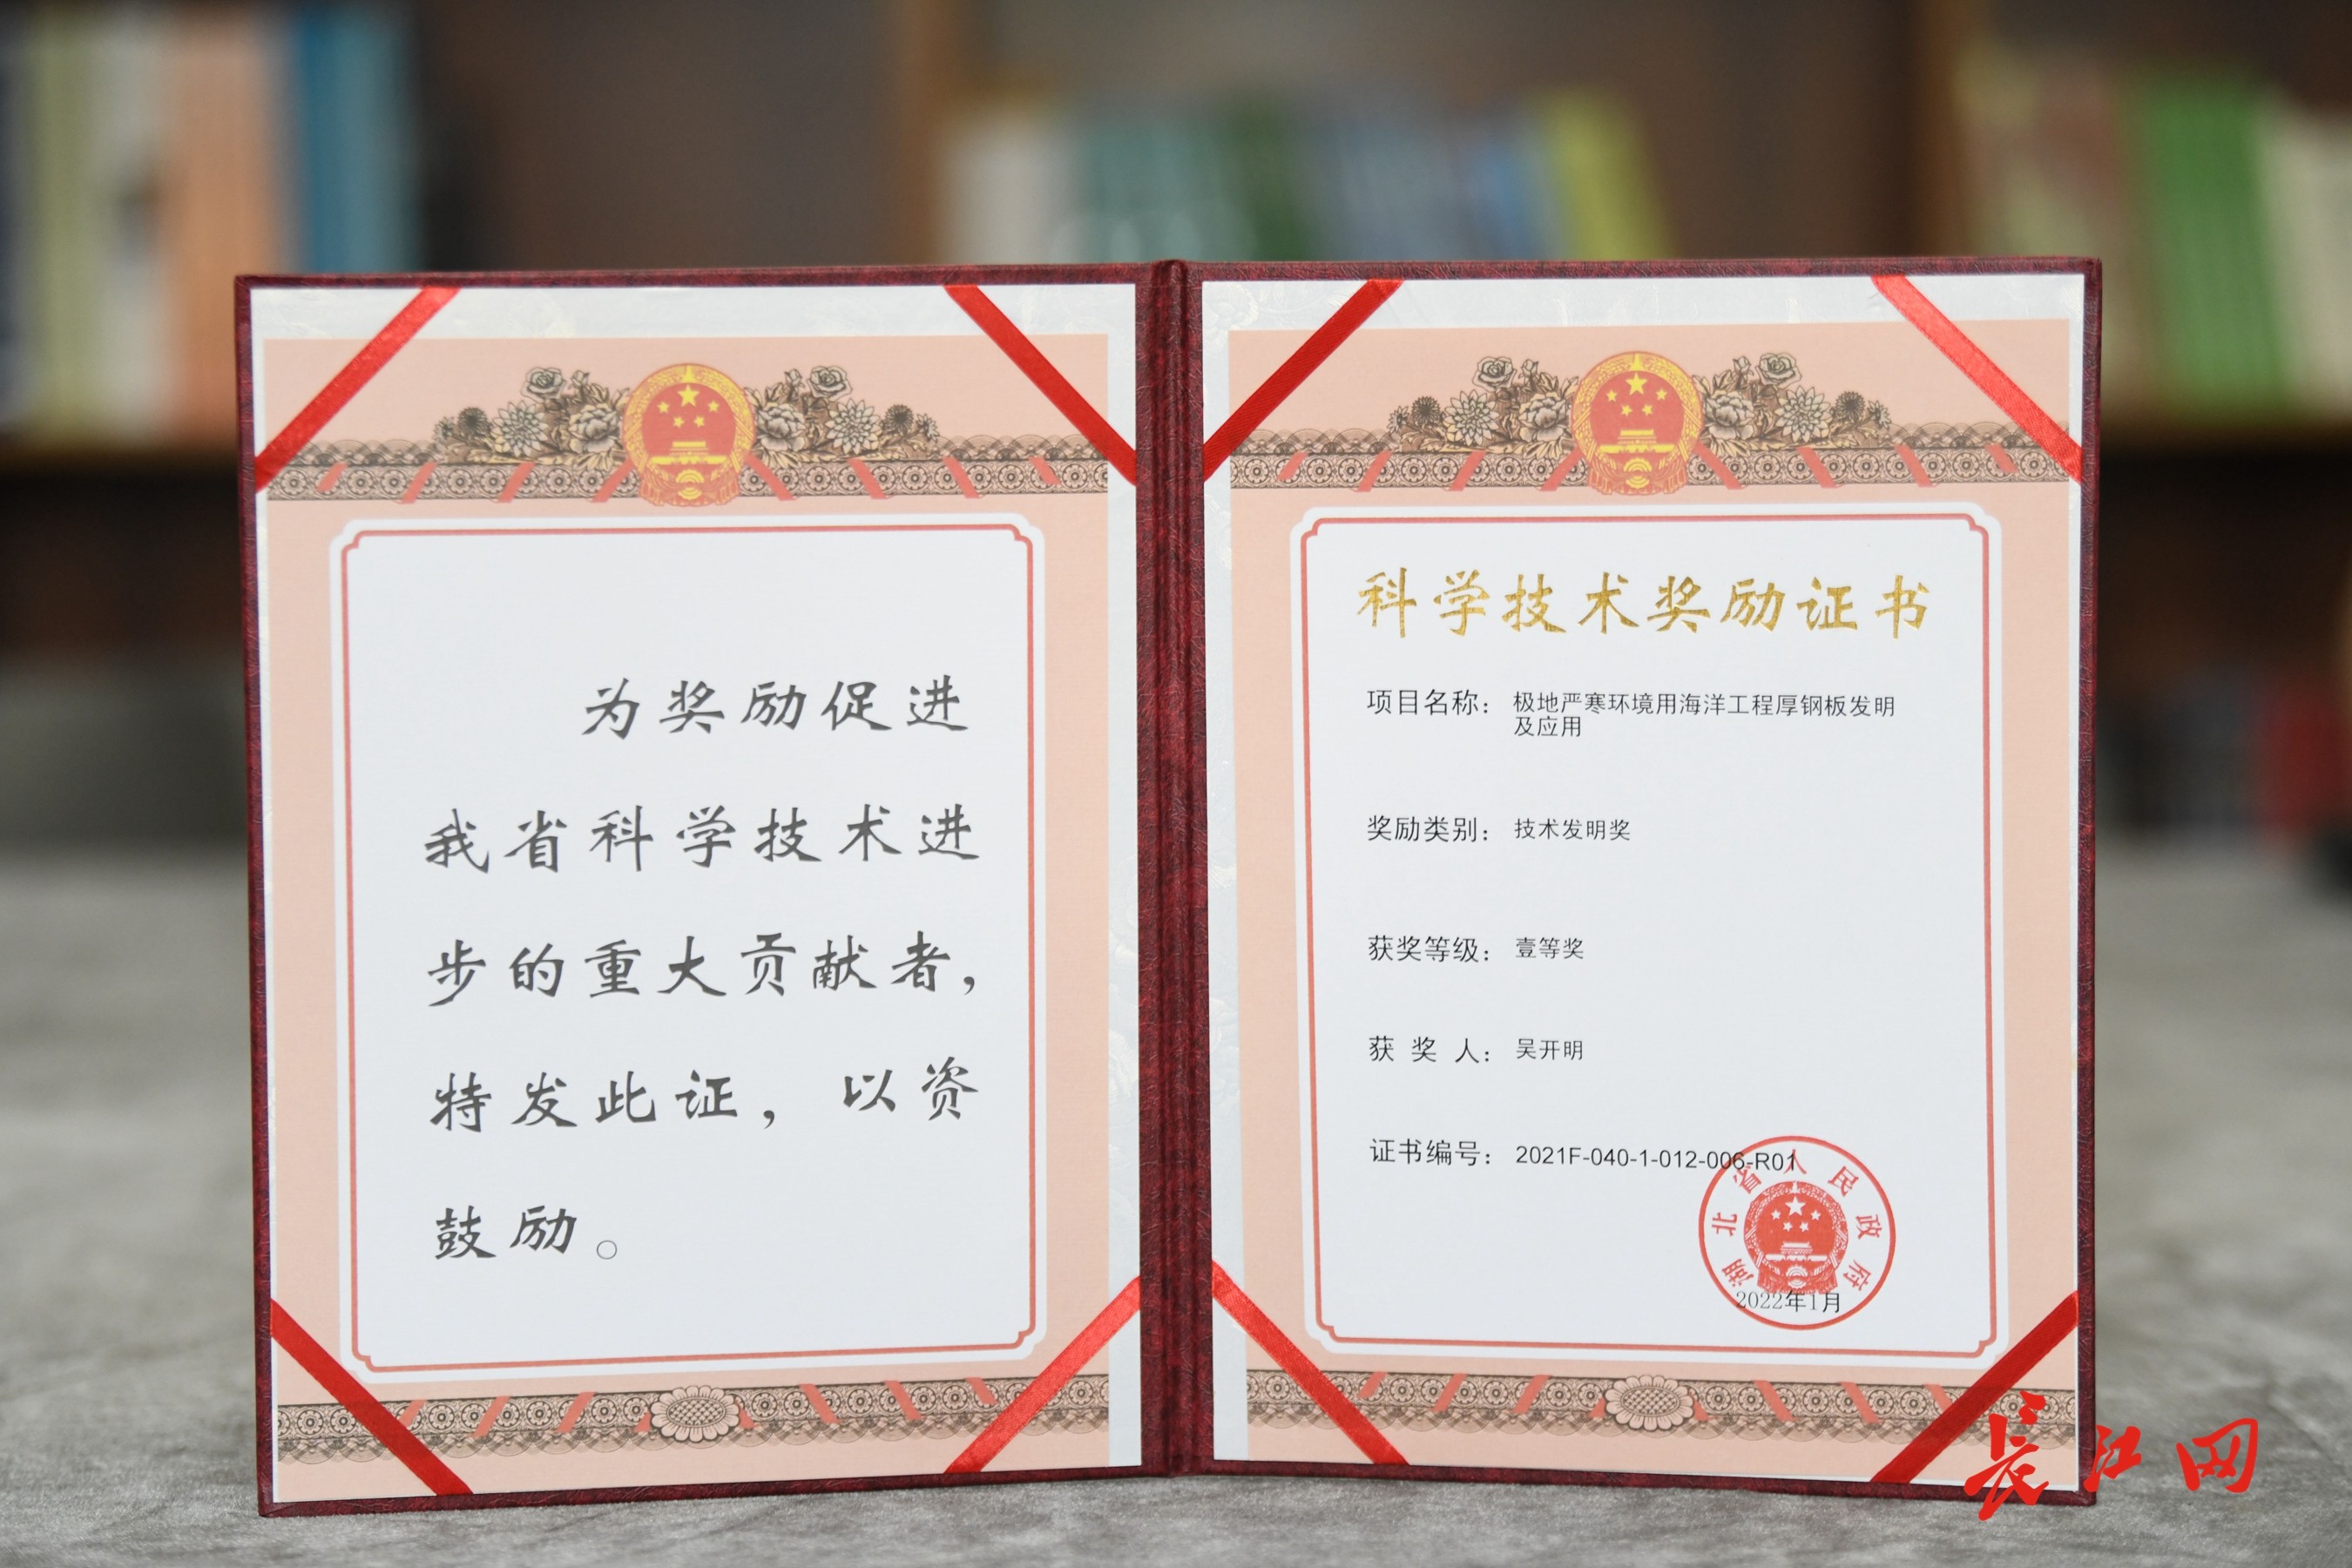 为奖励促进
我省科学技术进
步的重大贡献者，
特发此证，以资
鼓励。
科学技术奖励证书
项目名称：极地严寒环境用海洋工程厚钢板发明
及应用
奖励类别：技术发明奖
获奖等级：壹等奖
获奖人：吴开明
证书编号：2021F-040-1-012-006-R01
湖北省人民政府
2022年1月
长江网